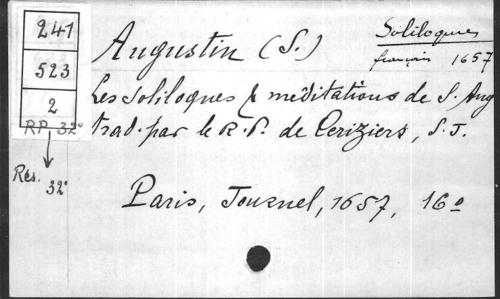 241
523
2
RP. 32°
Rés. 32°
Augustin (S.)
Soliloques
français 1657
Les soliloques & méditations de S. Aug
trad. par le R. P. de Ceriziers, S. J.
Paris, Tournel, 1657, 16°